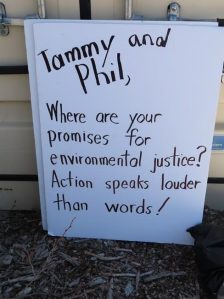 Tammy and
Phil,
Where are your
promises for
environmental justice?
Action speaks louder
than words!